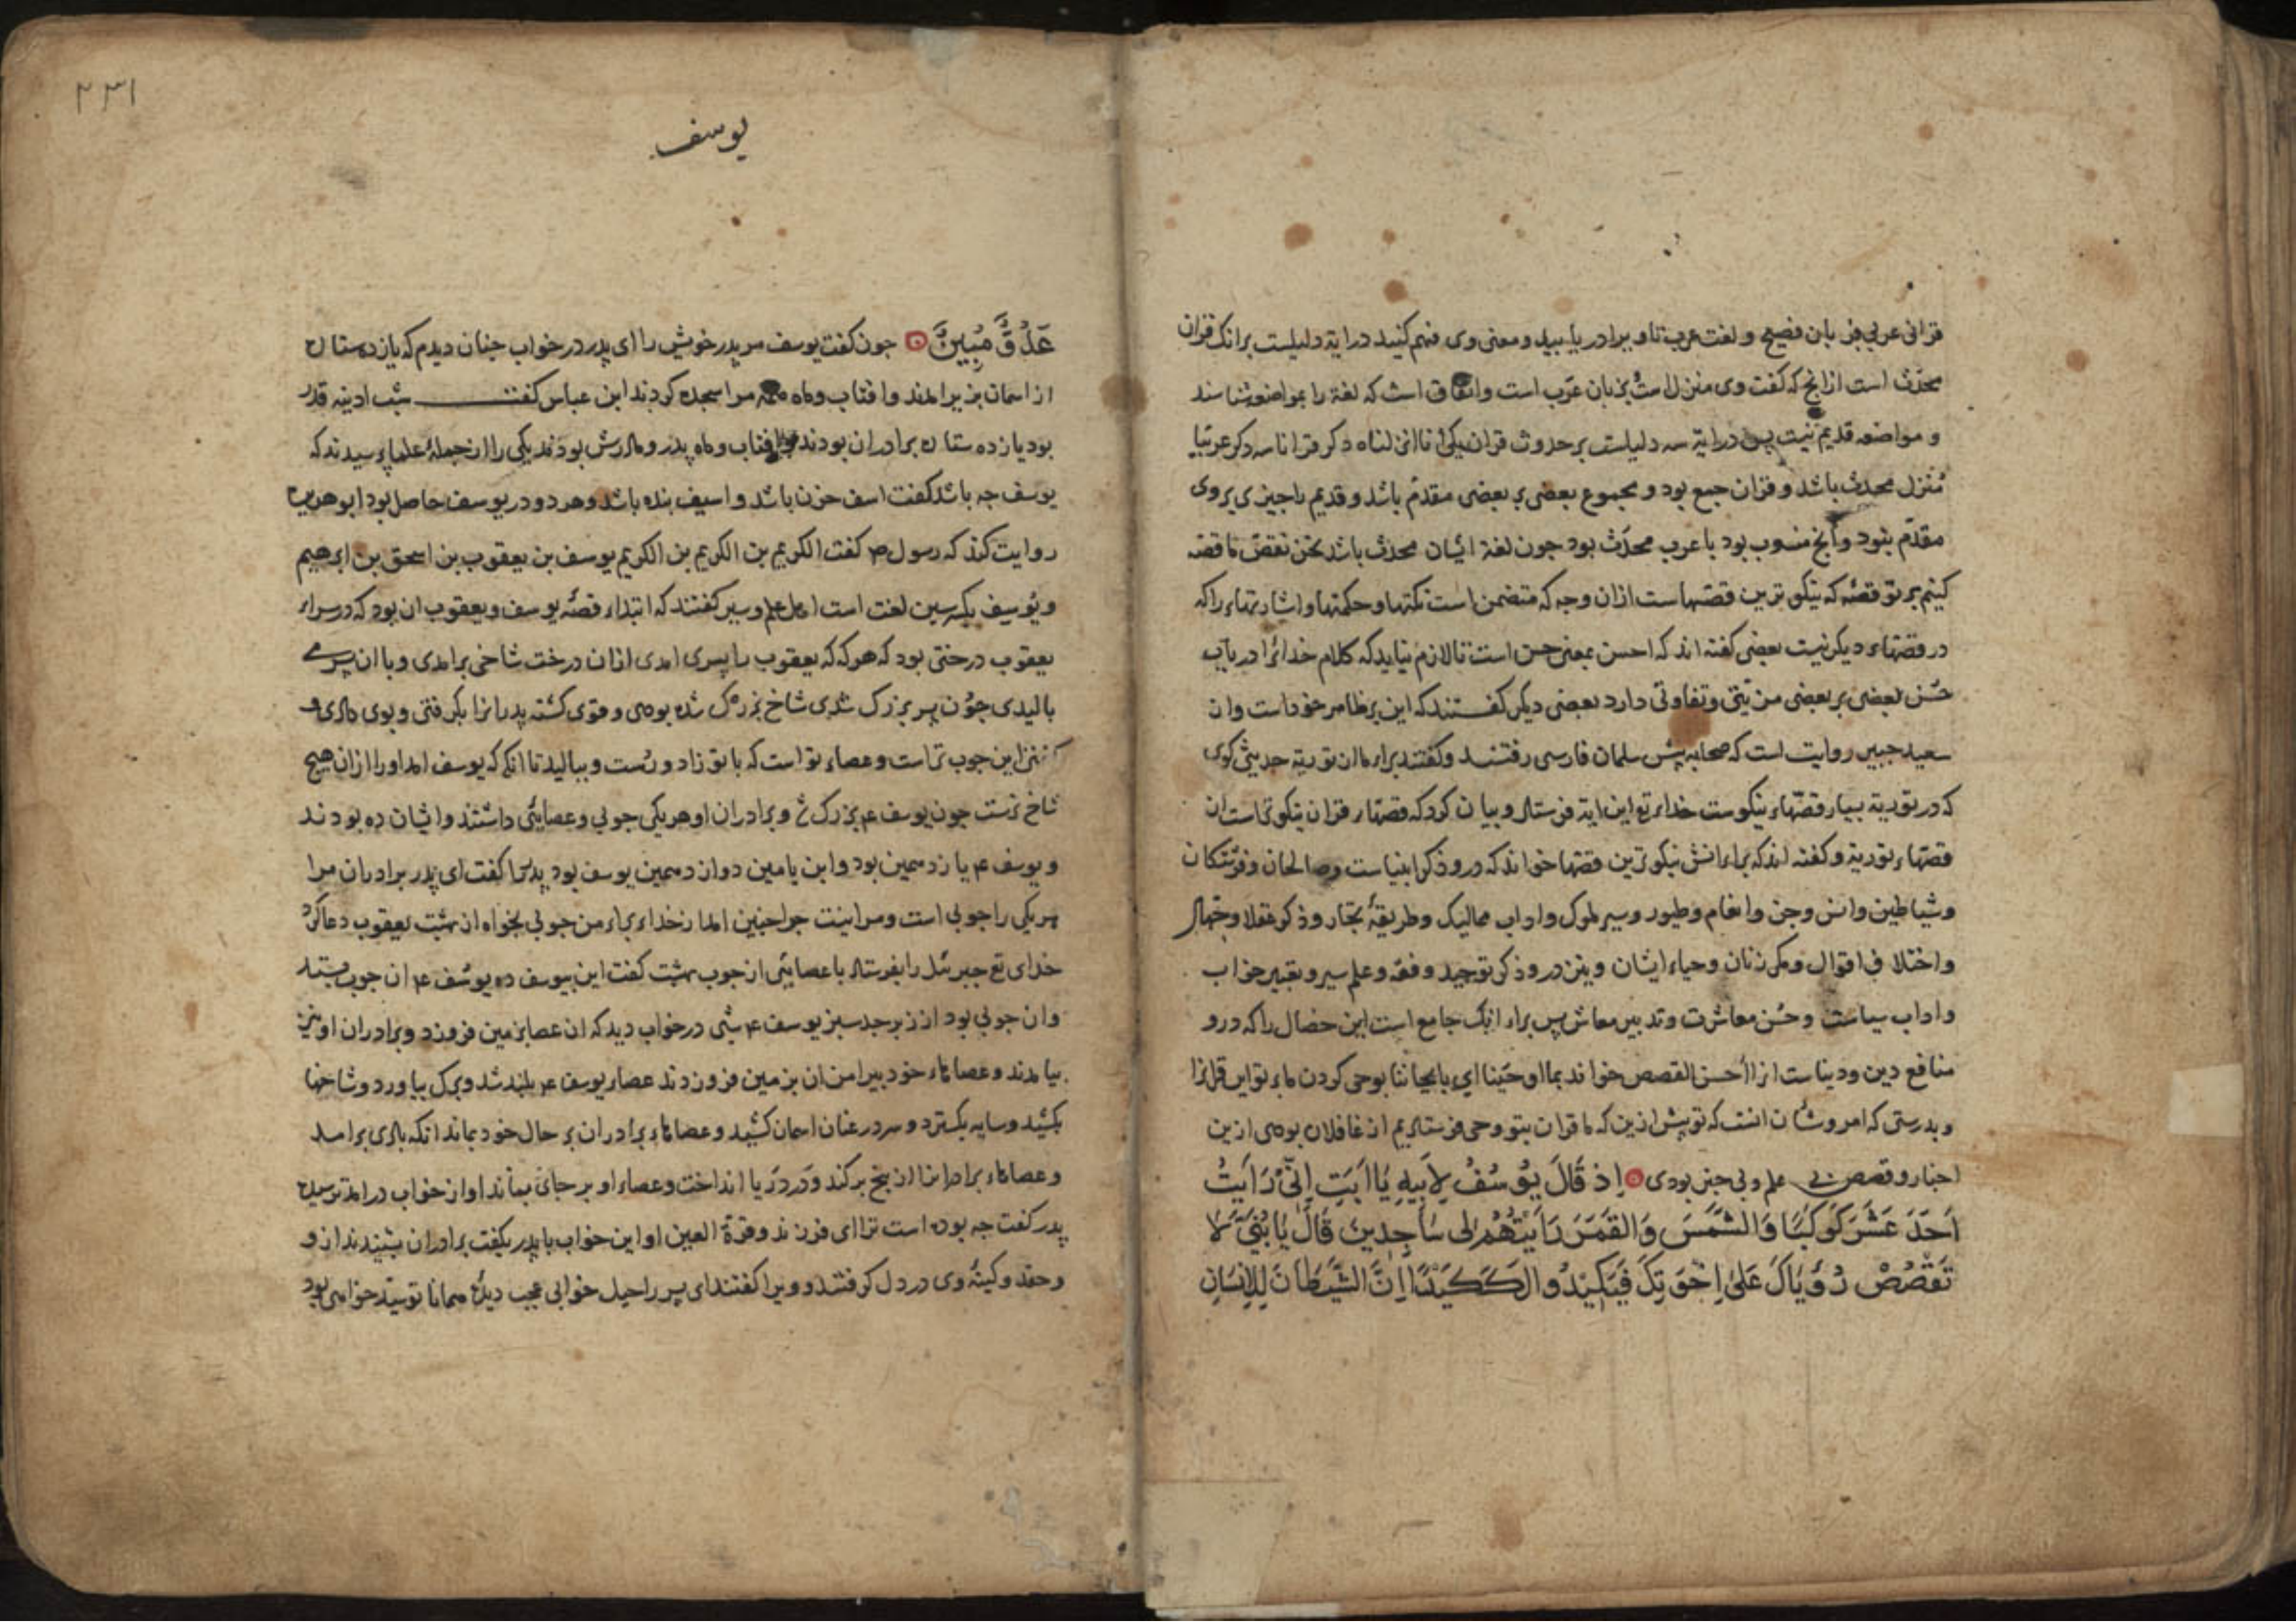 قرانی عربی بز بان فصیح و لغت عرب تا وبرا دریابید و معنی وی فهم کنید درایة دلیلست برانک قران
محدّث است ازانج که کفت وی منزل است بزبان عرب است واتفاق است که لغة را بمواضعه شناسند
و مواضعه قدیم نیست پس درایة سه دلیلست بر حدوث قران یکی انا انزلناه دکر قرانا سه دکر عربیا
مُنزل محدث باشد و قران جمع بود و مجموع بعضی بر بعضی مقدم باشد و قدیم را جیزی بروی
مقدّم نبود وانج منسوب بود با عرب محدّث بود جون لغة ایشان محدث باشد نحن نقص ما قصه
کنیم بر تو قصّه که نیکو ترین قصّهاست ازان وجه که متضمن است نکتها و حکمتها و اشارتهاء را که
در قصّهاء دیکر نیست بعضی کفته اند که احسن بمعنی حسن است تا لازم نیاید که کلام خدائرا در باب
حُسن بعضی بر بعضی مزیّتی و تفاوتی دارد بعضی دیکر کفتند که این بر ظاهر خود است وان
سعید جبیر روایت است که صحابه پیش سلمان فارسی رفتند و کفتند براء ما ان توریة حدیثی کوی
که در توریة بسیار قصّهاء نیکوست خداء تع این ایة فرستاد و بیان کرد که قصّهاء قران نیکو تراست ان
قصّهاء توریة و کفته اند که براء انش نیکو ترین قصّها خواند که درو ذکر انبیاست وصالحان و فرشتکان
وشیاطین وانس وجن وانعام وطیور وسیر ملوک واداب ممالیک وطریقهٔ تجار وذکر عقلا وجهال
واختلاف اقوال ومکر زنان وحیاء ایشان ونیز درو ذکر توحید و فقه و علم سیر و تعبیر خواب
واداب سیاست وحُسن معاشرت وتدبیر معاش پس براء انک جامع است این خصال را که درو
منافع دین ودنیاست انرا أحسن القصص خواند بما اوحَینا ای بایحائنا بوحی کردن ما بتو این قرانرا
وبدرستی که امر وشأن انست که تو پیش ازین که ما قران بتو وحی فرستادیم از غافلان بودی ازین
اخبار و قصص بی علم وبی خبر بودی اِذ قَالَ یُوسُفُ لِاَبِیهِ یَا اَبَتِ اِنّی رَاَیتُ
اَحَدَ عَشَرَ کَوکَبًا وَالشَّمسَ وَالقَمَرَ رَاَیتُهُم لِی سَاجِدِینَ قَالَ یَا بُنَیَّ لَا
تَقصُص رُؤیَاکَ عَلی اِخوَتِکَ فَیَکِیدُوا لَکَ کَیدًا اِنَّ الشَّیطَانَ لِلاِنسَانِ
۲۳۱
یوسف
عَدُوٌّ مُبِینٌ جون کفت یوسف مر پدر خویش را ای پدر در خواب جنان دیدم که یازده ستاره
از اسمان بزیر امدند وافتاب وماه مرا سجده کردند ابن عباس کفت شب ادینه قدر
بود یازده ستاره برادران بودند وافتاب وماه پدر ومادرش بودند یکی را از جملهٔ علما پرسیدند که
یوسف جه باشد کفت اسف حزن باشد و اسیف بنده باشد وهر دو در یوسف حاصل بود ابو هریره
روایت کند که رسول ص کفت الکریم بن الکریم بن الکریم یوسف بن یعقوب بن اسحق بن ابرهیم
ویوسِف بکسر سین لغت است اهل علم وسیر کفتند که ابتداء قصّه یوسف ویعقوب ان بود که در سراء
یعقوب درختی بود که هر که که یعقوب را پسری امدی ازان درخت شاخی برامدی وبا ان پسر
بالیدی جون پسر بزرک شدی شاخ بزرک شده بودی وقوی کشته پدر انرا بکرفتی وبوی دادی و
کفتی این جوب تراست وعصاء تو است که با تو زاد ورُست وببالید تا انکه که یوسف امد اورا ازان هیج
شاخ نرست جون یوسف ع بزرک شد وبرادران او هر یکی جوبی وعصایی داشتند وایشان ده بودند
ویوسف ع یازدهمین بود وابن یامین دوازدهمین یوسف بود پدر را کفت ای پدر برادران مرا
هر یکی را جوبی است ومرا نیست جرا جنین امد از خداء براء من جوبی بخواه از بهشت یعقوب دعا کرد
خدای تع جبرئل را بفرستاد با عصایی از جوب بهشت کفت این بیوسف ده یوسُف ع ان جوب بستد
وان جوبی بود از زبرجد سبز یوسف ع شبی در خواب دید که ان عصا بزمین فروزد وبرادران او نیز
بیامدند وعصاهاء خود پیرامن ان بزمین فروزدند عصاء یوسف ع بلند شد وبرک بیاورد وشاخها
بکشید وسایه بکسترد وسر در عنان اسمان کشید وعصاهاء برادران بر حال خود بماند انکه بادی برامد
وعصاهاء برادرانرا از بیخ برکند ودر دریا انداخت وعصاء او بر جای بماند او از خواب درامد ترسیده
پدر کفت جه بوده است ترا ای فرزند وقرة العین او این خواب با پدر بکفت برادران بشنیدند ازو
وحقد وکینهٔ وی در دل کرفتند وویرا کفتند ای پسر راحیل خوابی عجب دیدهٔ همانا تو سیّد خواهی بود